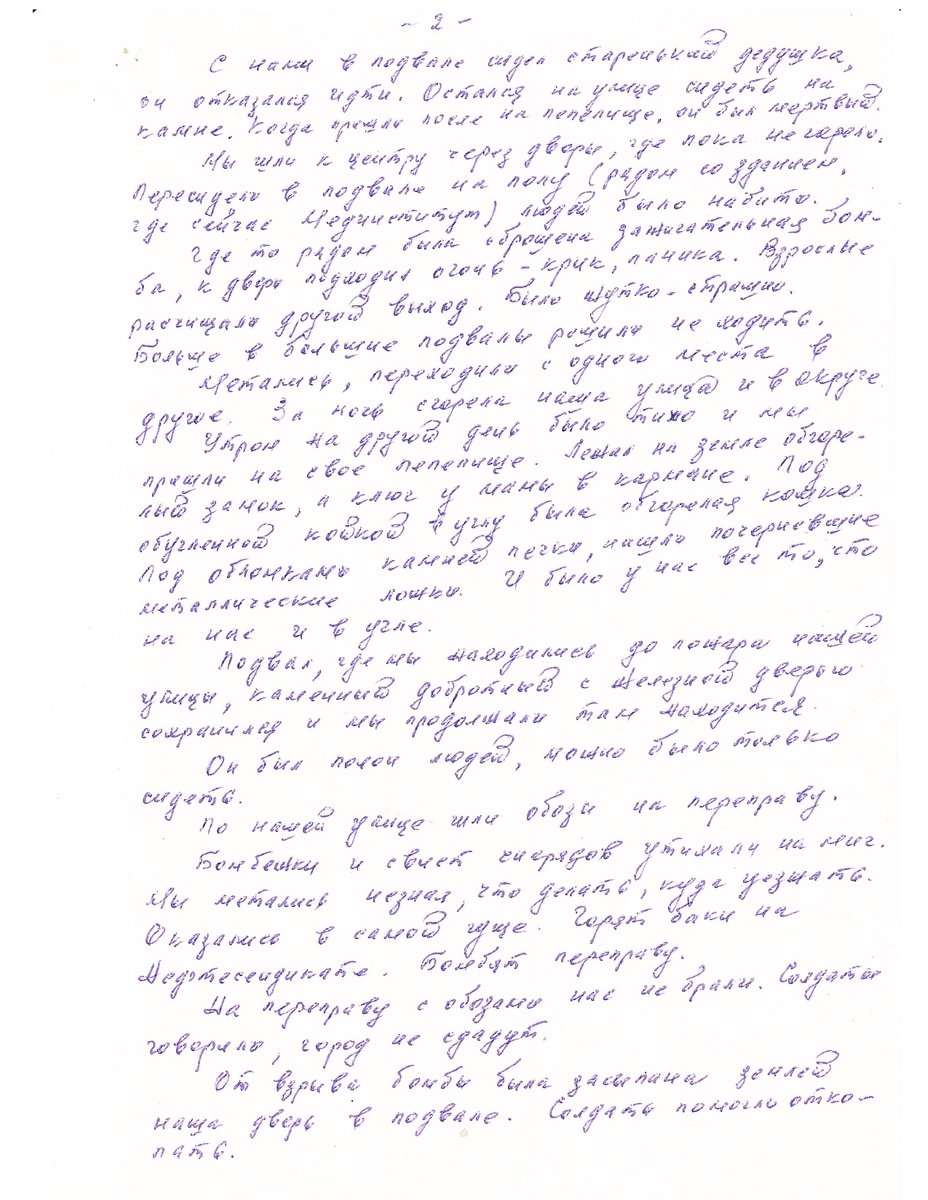 - 2 -
С нами в подвале сидел старенький дедушка,
он отказался идти. Остался на улице сидеть на
камне. Когда пришли после на пепелище, он был мертвый.
Мы шли к центру через дворы, где пока не горело.
Пересидели в подвале на полу (рядом со зданием,
где сейчас Мединститут) людей было набито.
Где то рядом была сброшена зажигательная бом-
ба, к двери подходил огонь - крик, паника. Взрослые
расчищали другой выход. Было жутко - страшно.
Больше в большие подвалы решили не ходить.
Метались, переходили с одного места в
другое. За ночь сгорела наша улица и в округе.
Утром на другой день было тихо и мы
пришли на свое пепелище. Лежал на земле обгоре-
лый замок, а ключ у мамы в кармане. Под
обугленной койкой в углу была обгорелая кошка.
Под обломками камней печки, нашли почерневшие
металлические ложки. И было у нас все то, что
на нас и в узле.
Подвал, где мы находились до пожара нашей
улицы, каменный добротный с железной дверью
сохранился и мы продолжали там находится.
Он был полон людей, можно было только
сидеть.
По нашей улице шли обозы на переправу.
Бомбежки и свист снарядов утихали на миг.
Мы метались незная, что делать, куда уезжать.
Оказались в самой гуще. Горят баки на
Недфтесендикате. Бомбят переправу.
На переправу с обозами нас не брали. Солдаты
говорили, город не сдадут.
От взрыва бомбы была засыпана землей
наша дверь в подвале. Солдаты помогли отко-
пать.